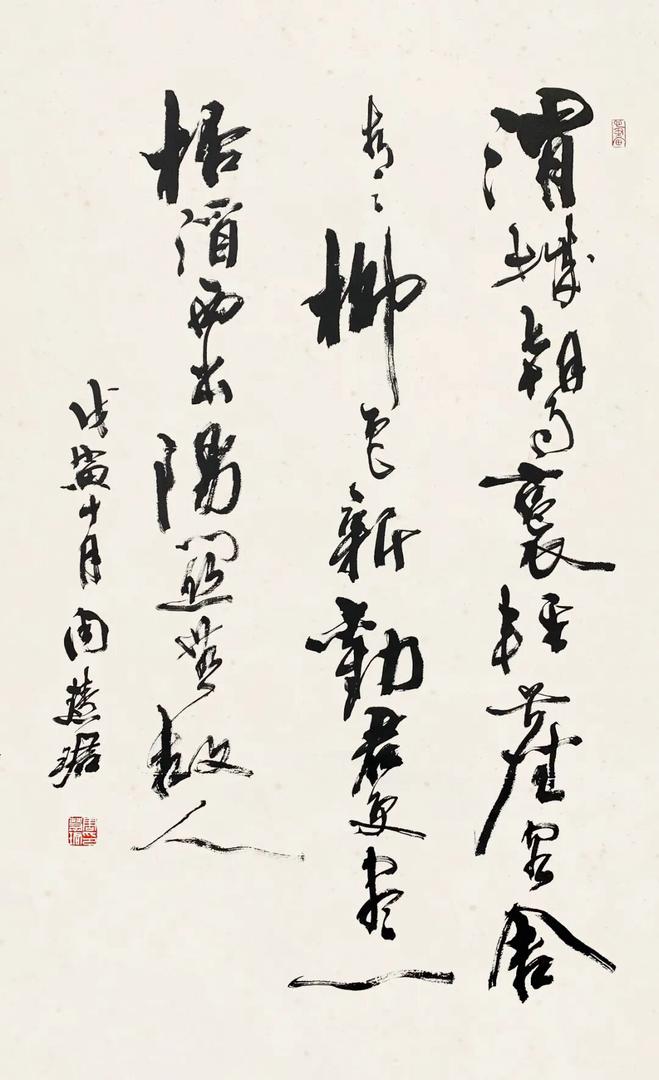 渭城朝雨裛輕塵客舍
青々柳色新勸君更盡一
桮酒西出陽關無故人
戊寅十月周慧珺